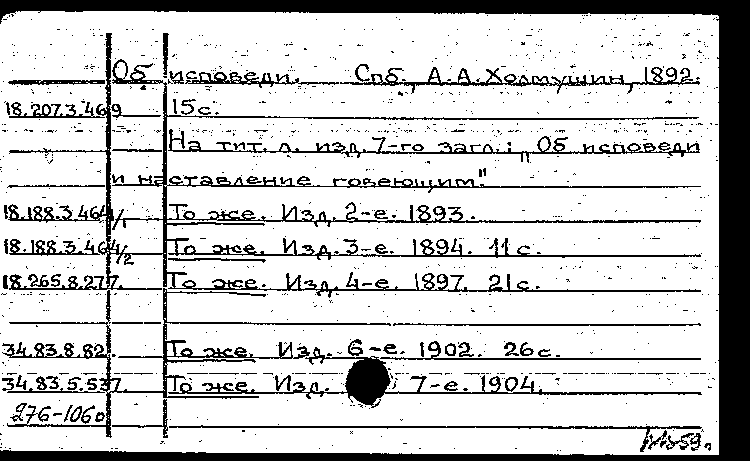 Об исповеди. Спб., А.А. Холмушин, 1892.
18.207.3.469 15с.
На тит. л. изд. 7-го загл.: „Об исповеди
и наставление говеющим."
18.188.3.464/1 То же. Изд. 2-е. 1893.
18.188.3.464/2 То же. Изд. 3-е. 1894. 11с.
18.265.8.277. То же. Изд. 4-е. 1897. 21с.
34.83.8.82. То же. Изд. 6-е. 1902. 26с.
34.83.5.537. То же. Изд. 7-е. 1904.
276-106о